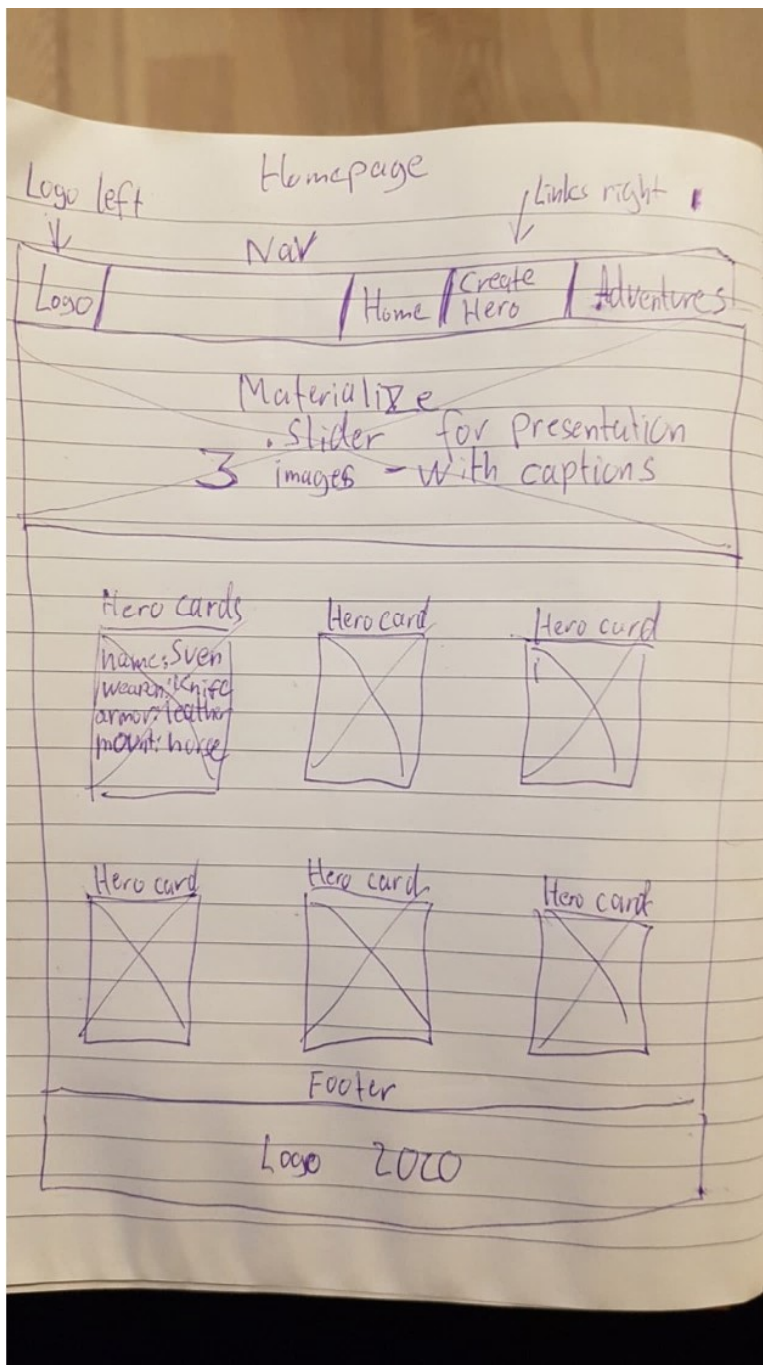 Homepage
Logo left
Links right
Nav
Logo
Home
Create
Hero
Adventures
Materialize
.Slider for presentation
3 images - with captions
Hero cards
Hero card
Hero card
name: Sven
weapon: Knife
armor: leather
mount: horse
Hero card
Hero card
Hero card
Footer
Logo 2020